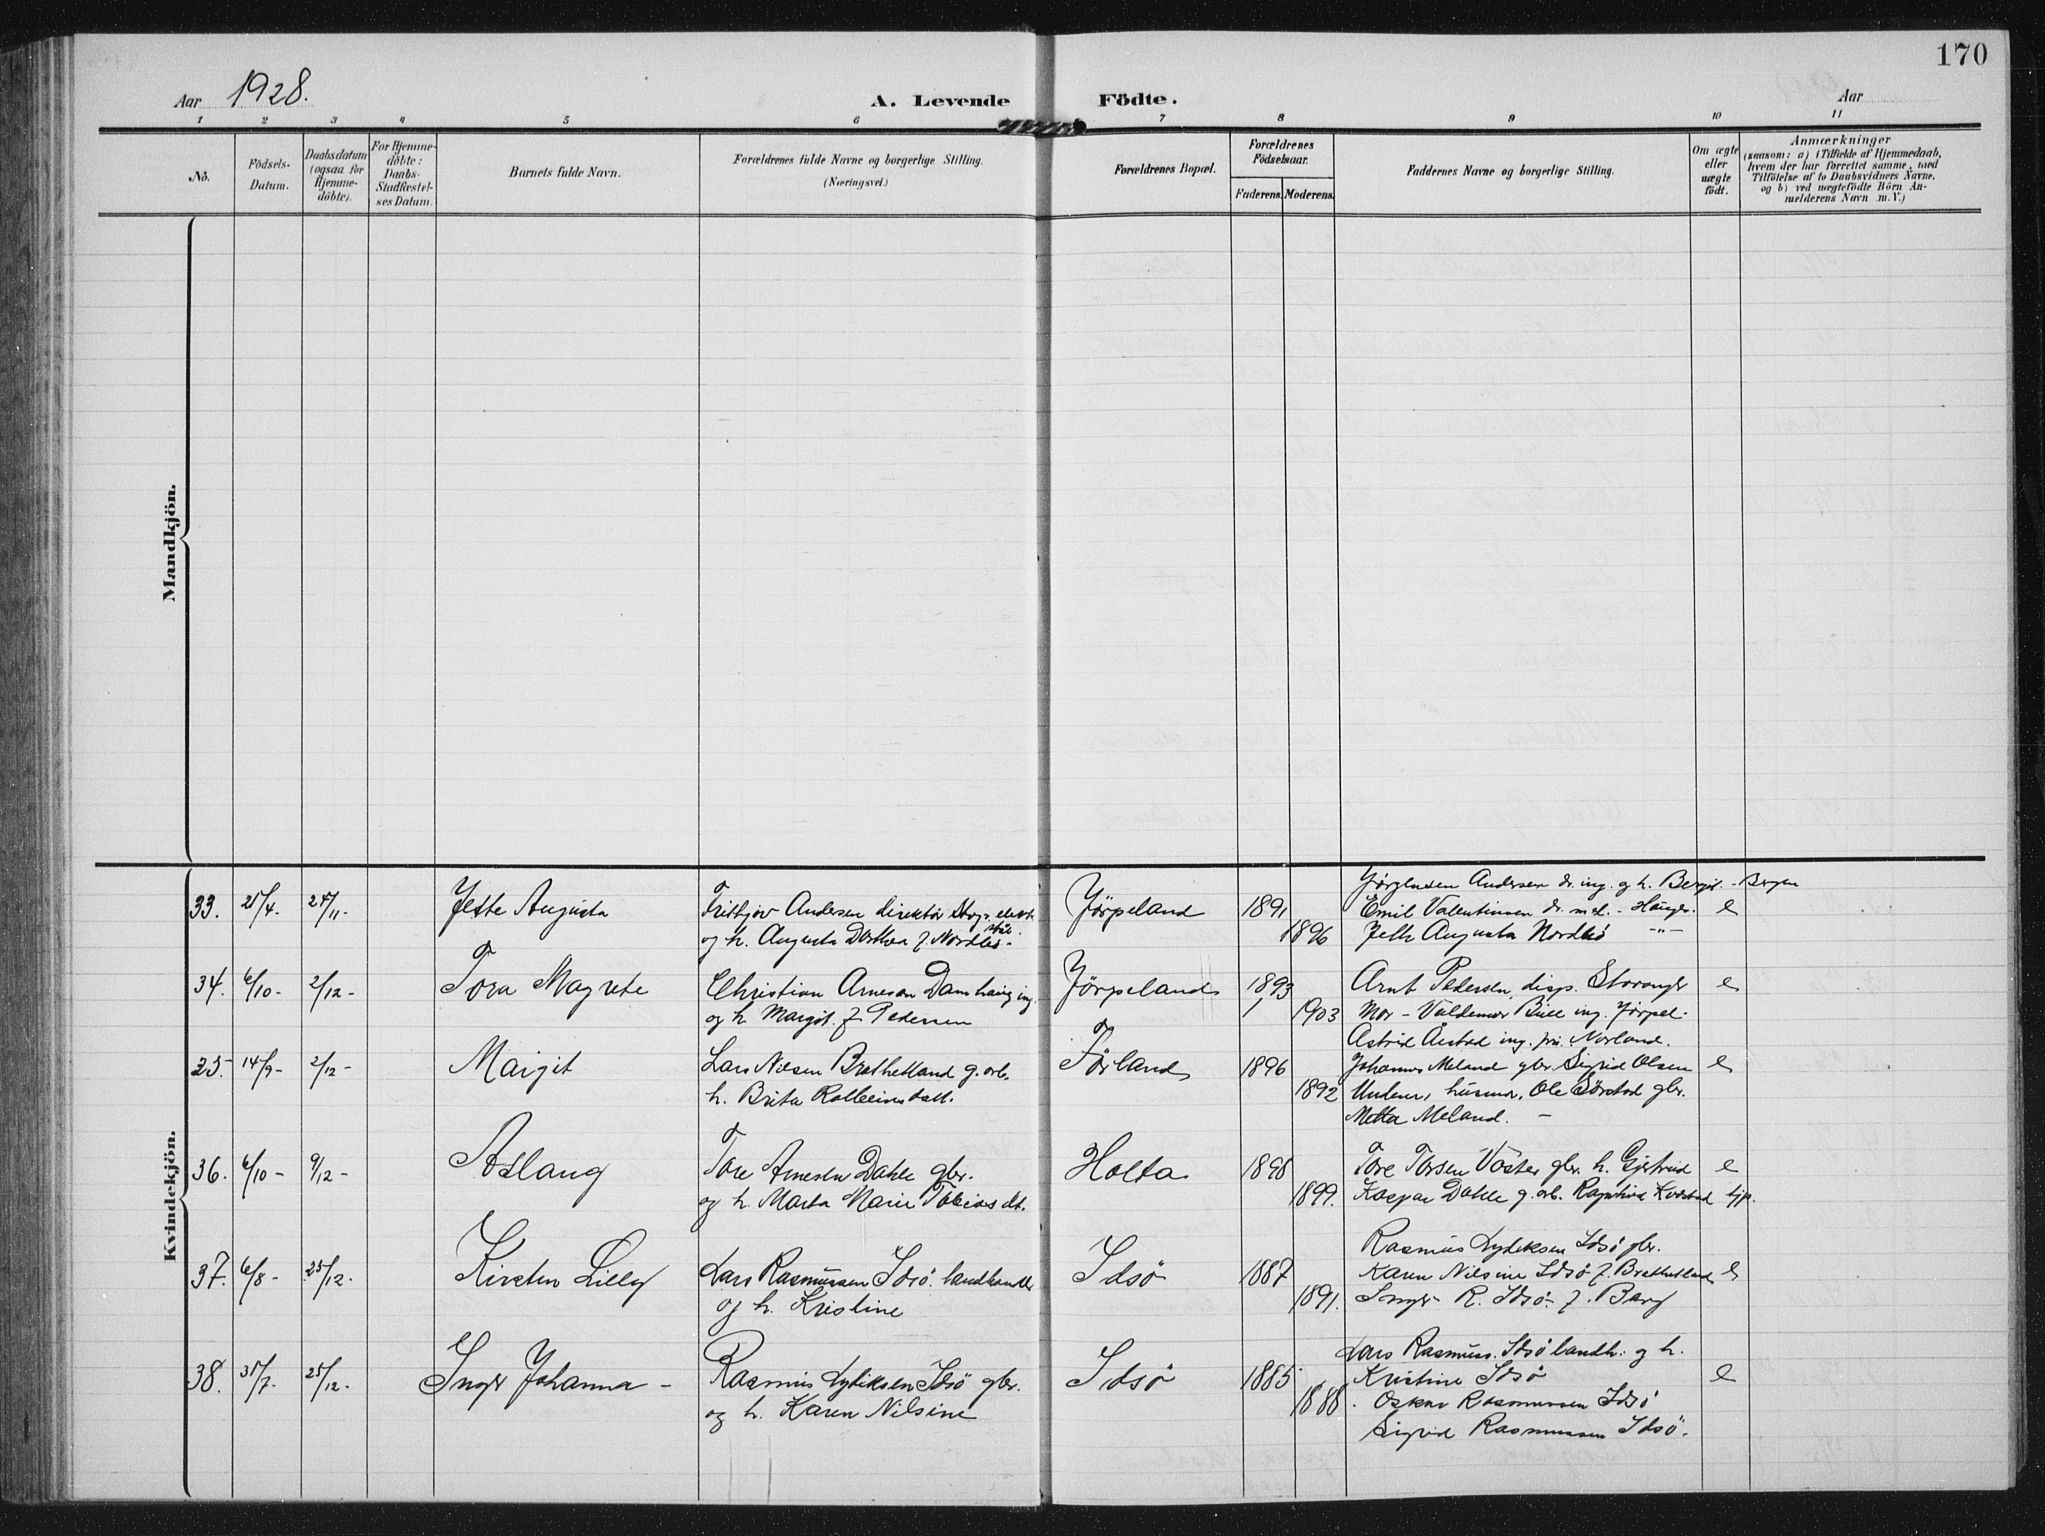 170
Aar 1928.
A. Levende Födte.
Aar
1 2 3 4 5 6 7 8 9 10 11
No.
Födsels-Datum.
Daabsdatum (ogsaa for Hjemme-döbte).
For Hjemme-döbte: Daabs-Stadfæstel-ses Datum.
Barnets fulde Navn.
Forældrenes fulde Navne og borgerlige Stilling.
(Næringsvei.)
Forældrenes Bopæl.
Forældrenes Födselsaar.
Faderens. Moderens.
Faddernes Navne og borgerlige Stilling.
Om ægte eller uægte födt.
Anmærkninger
(saasom: a) i Tilfælde af Hjemmedaab,
hvem der har forrettet samme, med
Tilföielse af to Daabsvidners Navne,
og b) ved uægtefödte Börn An-
melderens Navn m. V.)
Mandkjön.
Kvindekjön.
Jörgensen Andersen dr. ing. og h. Bergit - Bergen
33. 25/4. 24/11- Jette Augusta Fridtjov Andersen direktør Stav. elektr. Jørpeland 1891 Emil Valentinsen dr. med. - Hauges. e
stål.
og h. Augusta Dorthea f. Nordbø- 1896 Jette Augusta Nordbø -"-
34. 6/10- 2/12- Tora Magrete Christian Arnesen Damhaug ing. Jørpeland 1893 Arnt Pedersen, disp. Stavanger e
og h. Margit f. Pedersen 1903 Mor - Valdemar Bull ing. Jørpel.
Astrid Åstad ing. fru. Norland.
25. 14/9- 2/12- Margit Lars Nilsen Brathetland g. arb. Førland 1896 Johannes Meland gbr. Sigrid Olsen e
h. Brita Kolbeinsdatt. 1892 husmor, Ole Sørstad gbr.
Metta Meland. -
36. 6/10- 9/12- Aslaug Tore Arnesen Dahle gbr. Holta 1898 Tore Torsen Voster gbr. h. Gjertrud e
og h. Marta Marie Tobiasdt. 1899. Kaspar Dahle g. arb. Kvalstad tjp.
Rasmus Lydiksen Idsø gbr.
37. 6/8- 25/12. Kirsten Lilly Lars Rasmussen Idsø. landhandl Idsø 1887 Karen Nilsine Idsø f. Brathetland e
og h. Kristine 1891. Inger R. Idsø. f. Berg
Lars Rasmuss. Idsø landh. og h.
38. 31/7. 25/12- Inger Johanna - Rasmus Lydiksen Idsø gbr. Idsø 1885 Kristine Idsø e
og h. Karen Nilsine 1888. Oskar Rasmussen Idsø
Sigrid Rasmussen Idsø.